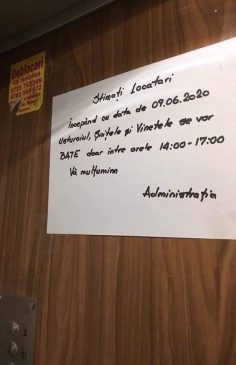 Deblocari
Usi metalice
Stimați Locatari
Începând cu data de 09.06.2020
Usturoiul, Șnițele și Vinetele se vor
BATE doar între orele 14:00-17:00
Vă mulțumim
Administrația